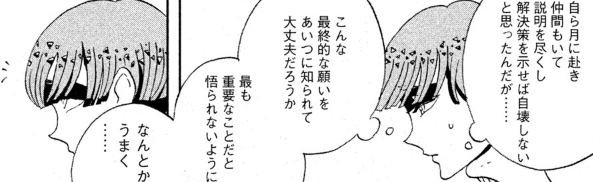 自ら月に赴き
仲間もいて
説明を尽くし
解決策を示せば自壊しない
と思ったんだが……
こんな
最終的な願いを
あいつに知られて
大丈夫だろうか
最も
重要なことだと
悟られないように
なんとか
うまく
……